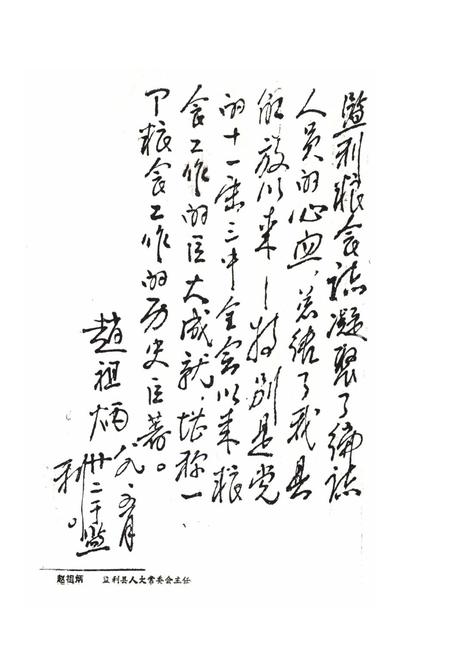 監利粮食志凝聚了编志
人员的心血、总结了我县
解放以来—特别是党
的十一届三中全会以来粮
食工作的巨大成就，堪称一
下粮食工作的历史巨著。
趙祖炳
八九·五月
廿二于監
利。
赵祖炳 监利县人大常委会主任